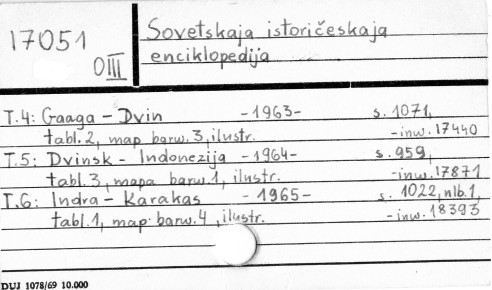 17051
OIII
Sovetskaja istoričeskaja
enciklopedija
T.4: Gaaga - Dvin -1963- s. 1071,
tabl. 2, map barw. 3, ilustr. -inw. 17440
T.5: Dvinsk - Indonezija -1964- s. 959,
tabl. 3, mapa barw. 1, ilustr. -inw. 17871
T.6: Indra - Karakas -1965- s. 1022, nlb. 1,
tabl. 1, map barw. 4, ilustr. -inw. 18393
DUJ 1078/69 10.000